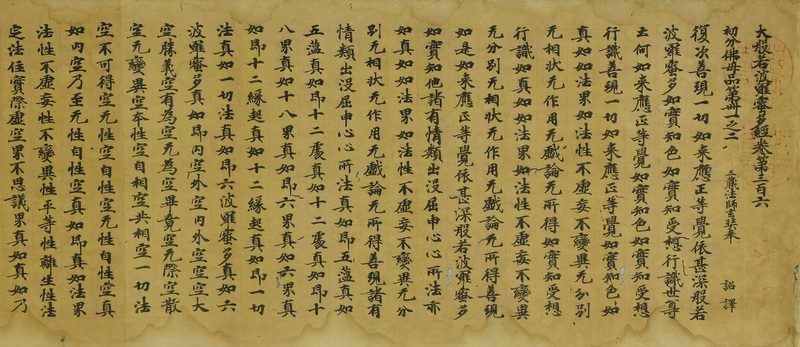 大般若波羅蜜多經卷第三百六
初分佛母品第卌一之二　三藏法師玄奘奉　詔譯
復次善現一切如來應正等覺依甚深般若
波羅蜜多如實知色如實知受想行識世尊
云何如來應正等覺如實知色如實知受想
行識善現一切如來應正等覺如實知色如
真如如法界如法性不虛妄不變異无分別
无相狀无作用无戲論无所得如實知受想
行識如真如如法界如法性不虛妄不變異
无分別无相狀无作用无戲論无所得善現
如是如來應正等覺依甚深般若波羅蜜多
如實知他諸有情類出沒屈申心心所法亦
如真如如法界如法性不虛妄不變異无分
別无相狀无作用无戲論无所得善現諸有
情類出沒屈申心心所法真如即五蘊真如
五蘊真如即十二處真如十二處真如即十
八界真如十八界真如即六界真如六界真
如即十二緣起真如十二緣起真如即一切
法真如一切法真如即六波羅蜜多真如六
波羅蜜多真如即內空外空內外空空空大
空勝義空有為空无為空畢竟空无際空散
空无變異空本性空自相空共相空一切法
空不可得空无性空自性空无性自性空真
如內空乃至无性自性空真如即真如法界
法性不虛妄性不變異性平等性離生性法
定法住實際虛空界不思議界真如真如乃